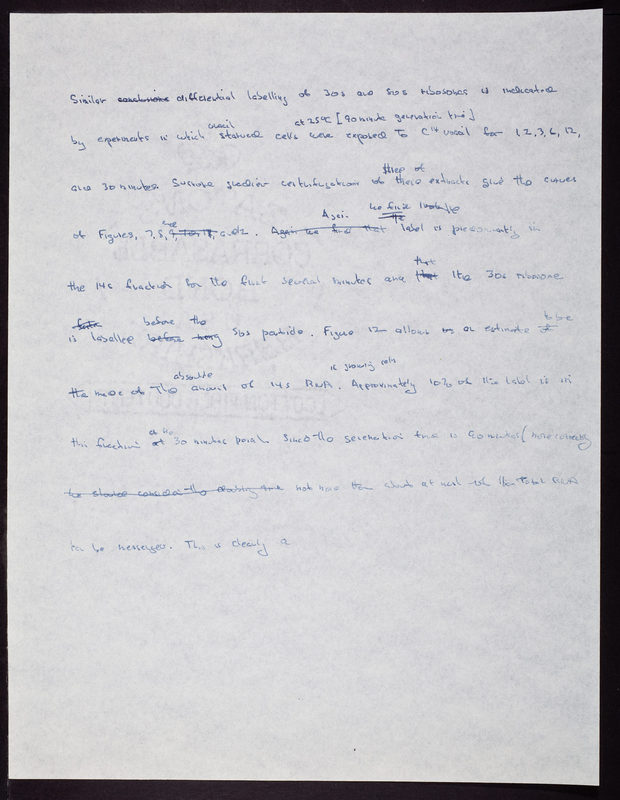 Similar conclusions differential labelling of 30s and 50s ribosomes is indicated
uracil at 25°C [90 minute generation time]
by experiments in which starved cells were exposed to C14 uracil for 1, 2, 3, 6, 12,
three of
and 30 minutes. Sucrose gradient centrifugation of these extracts give the curves
Again we find
of Figures, 7, 8, 9, and 12. Again we find that label is predominantly in
that
the 14s fraction for the first several minutes and that the 30s ribosome
before the to be
is labelled before 50s particle. Figure 12 allows an estimate of
absolute in growing cells
the made of the amount of 14s RNA. Approximately 10% of the label is in
at the
this fraction at 30 minutes point. Since the generation time is 90 minutes (more correctly
not more than at most of the total RNA
can be messenger. This is clearly a